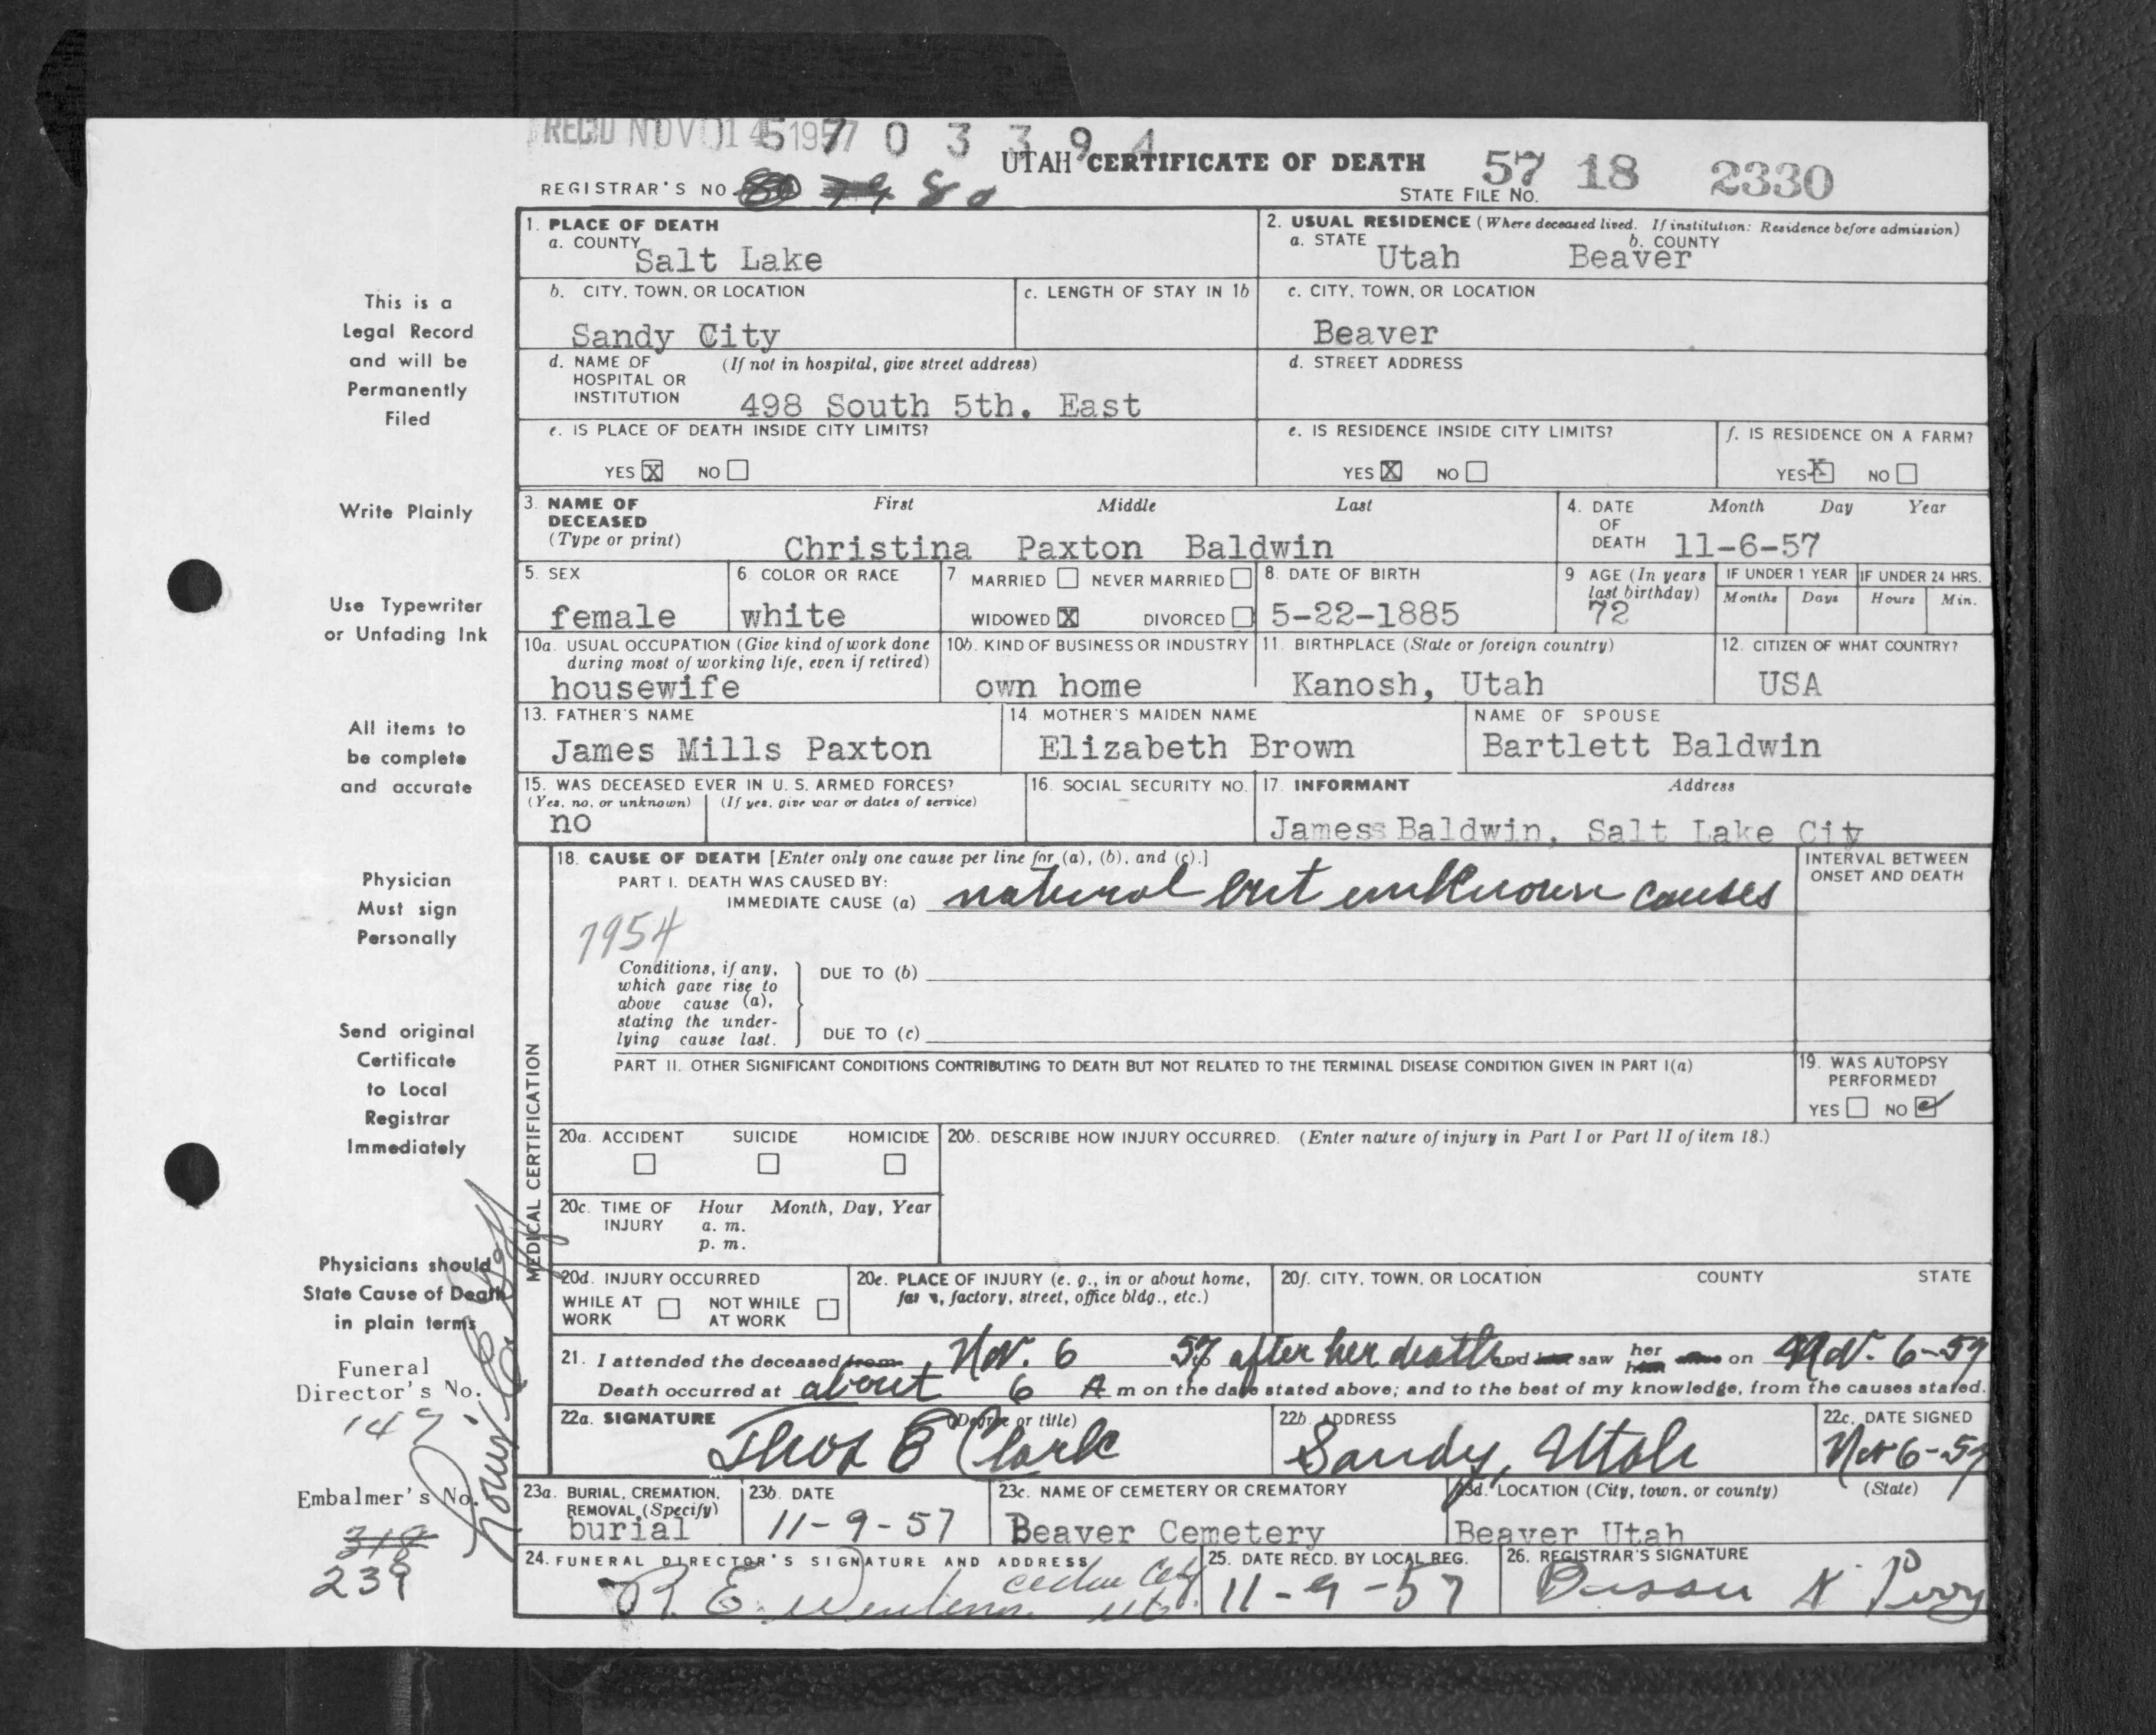 REC'D NOV 14 1957 5 7 0 3 3 9 4
UTAH CERTIFICATE OF DEATH
57 18 2330
REGISTRAR'S NO. 80 79 80
STATE FILE NO.
1. PLACE OF DEATH
a. COUNTY
Salt Lake
2. USUAL RESIDENCE (Where deceased lived. If institution: Residence before admission)
a. STATE
Utah
b. COUNTY
Beaver
b. CITY, TOWN, OR LOCATION
Sandy City
c. LENGTH OF STAY IN 1b
c. CITY, TOWN, OR LOCATION
Beaver
d. NAME OF HOSPITAL OR INSTITUTION
(If not in hospital, give street address)
498 South 5th. East
d. STREET ADDRESS
e. IS PLACE OF DEATH INSIDE CITY LIMITS?
YES X NO
e. IS RESIDENCE INSIDE CITY LIMITS?
YES X NO
f. IS RESIDENCE ON A FARM?
YES X NO
3. NAME OF DECEASED
(Type or print)
First Middle Last
Christina Paxton Baldwin
4. DATE OF DEATH
Month Day Year
11-6-57
5. SEX
female
6. COLOR OR RACE
white
7. MARRIED NEVER MARRIED
WIDOWED X DIVORCED
8. DATE OF BIRTH
5-22-1885
9 AGE (In years last birthday)
72
IF UNDER 1 YEAR
Months Days
IF UNDER 24 HRS.
Hours Min.
10a. USUAL OCCUPATION (Give kind of work done
during most of working life, even if retired)
housewife
10b. KIND OF BUSINESS OR INDUSTRY
own home
11. BIRTHPLACE (State or foreign country)
Kanosh, Utah
12. CITIZEN OF WHAT COUNTRY?
USA
13. FATHER'S NAME
James Mills Paxton
14. MOTHER'S MAIDEN NAME
Elizabeth Brown
NAME OF SPOUSE
Bartlett Baldwin
15. WAS DECEASED EVER IN U. S. ARMED FORCES?
(Yes, no, or unknown) (If yes, give war or dates of service)
no
16. SOCIAL SECURITY NO.
17. INFORMANT Address
Jamess Baldwin, Salt Lake City
MEDICAL CERTIFICATION
18. CAUSE OF DEATH [Enter only one cause per line for (a), (b), and (c).]
PART I. DEATH WAS CAUSED BY:
IMMEDIATE CAUSE (a) natural but unknown causes
7954
INTERVAL BETWEEN
ONSET AND DEATH
Conditions, if any,
which gave rise to
above cause (a),
stating the under-
lying cause last.
DUE TO (b)
DUE TO (c)
PART II. OTHER SIGNIFICANT CONDITIONS CONTRIBUTING TO DEATH BUT NOT RELATED TO THE TERMINAL DISEASE CONDITION GIVEN IN PART I(a)
19. WAS AUTOPSY
PERFORMED?
YES NO
20a. ACCIDENT SUICIDE HOMICIDE
20b. DESCRIBE HOW INJURY OCCURRED. (Enter nature of injury in Part I or Part II of item 18.)
20c. TIME OF INJURY
Hour Month, Day, Year
a. m.
p. m.
20d. INJURY OCCURRED
WHILE AT WORK
NOT WHILE AT WORK
20e. PLACE OF INJURY (e. g., in or about home,
farm, factory, street, office bldg., etc.)
20f. CITY, TOWN, OR LOCATION COUNTY STATE
21. I attended the deceased from, Nov. 6 57 after her death and saw her him on Nov. 6-57
Death occurred at about 6 A m on the date stated above; and to the best of my knowledge, from the causes stated.
22a. SIGNATURE (Degree or title)
Thos E Clark
22b. ADDRESS
Sandy, Utah
22c. DATE SIGNED
Nov 6-57
23a. BURIAL, CREMATION,
REMOVAL (Specify)
burial
23b. DATE
11-9-57
23c. NAME OF CEMETERY OR CREMATORY
Beaver Cemetery
23d. LOCATION (City, town, or county) (State)
Beaver Utah
24. FUNERAL DIRECTOR'S SIGNATURE AND ADDRESS
R. E. Cedar City Ut.
25. DATE RECD. BY LOCAL REG.
11-9-57
26. REGISTRAR'S SIGNATURE
Perry
This is a
Legal Record
and will be
Permanently
Filed
Write Plainly
Use Typewriter
or Unfading Ink
All items to
be complete
and accurate
Physician
Must sign
Personally
Send original
Certificate
to Local
Registrar
Immediately
Physicians should
State Cause of Death
in plain terms
Funeral
Director's No.
147
Embalmer's No.
318
239